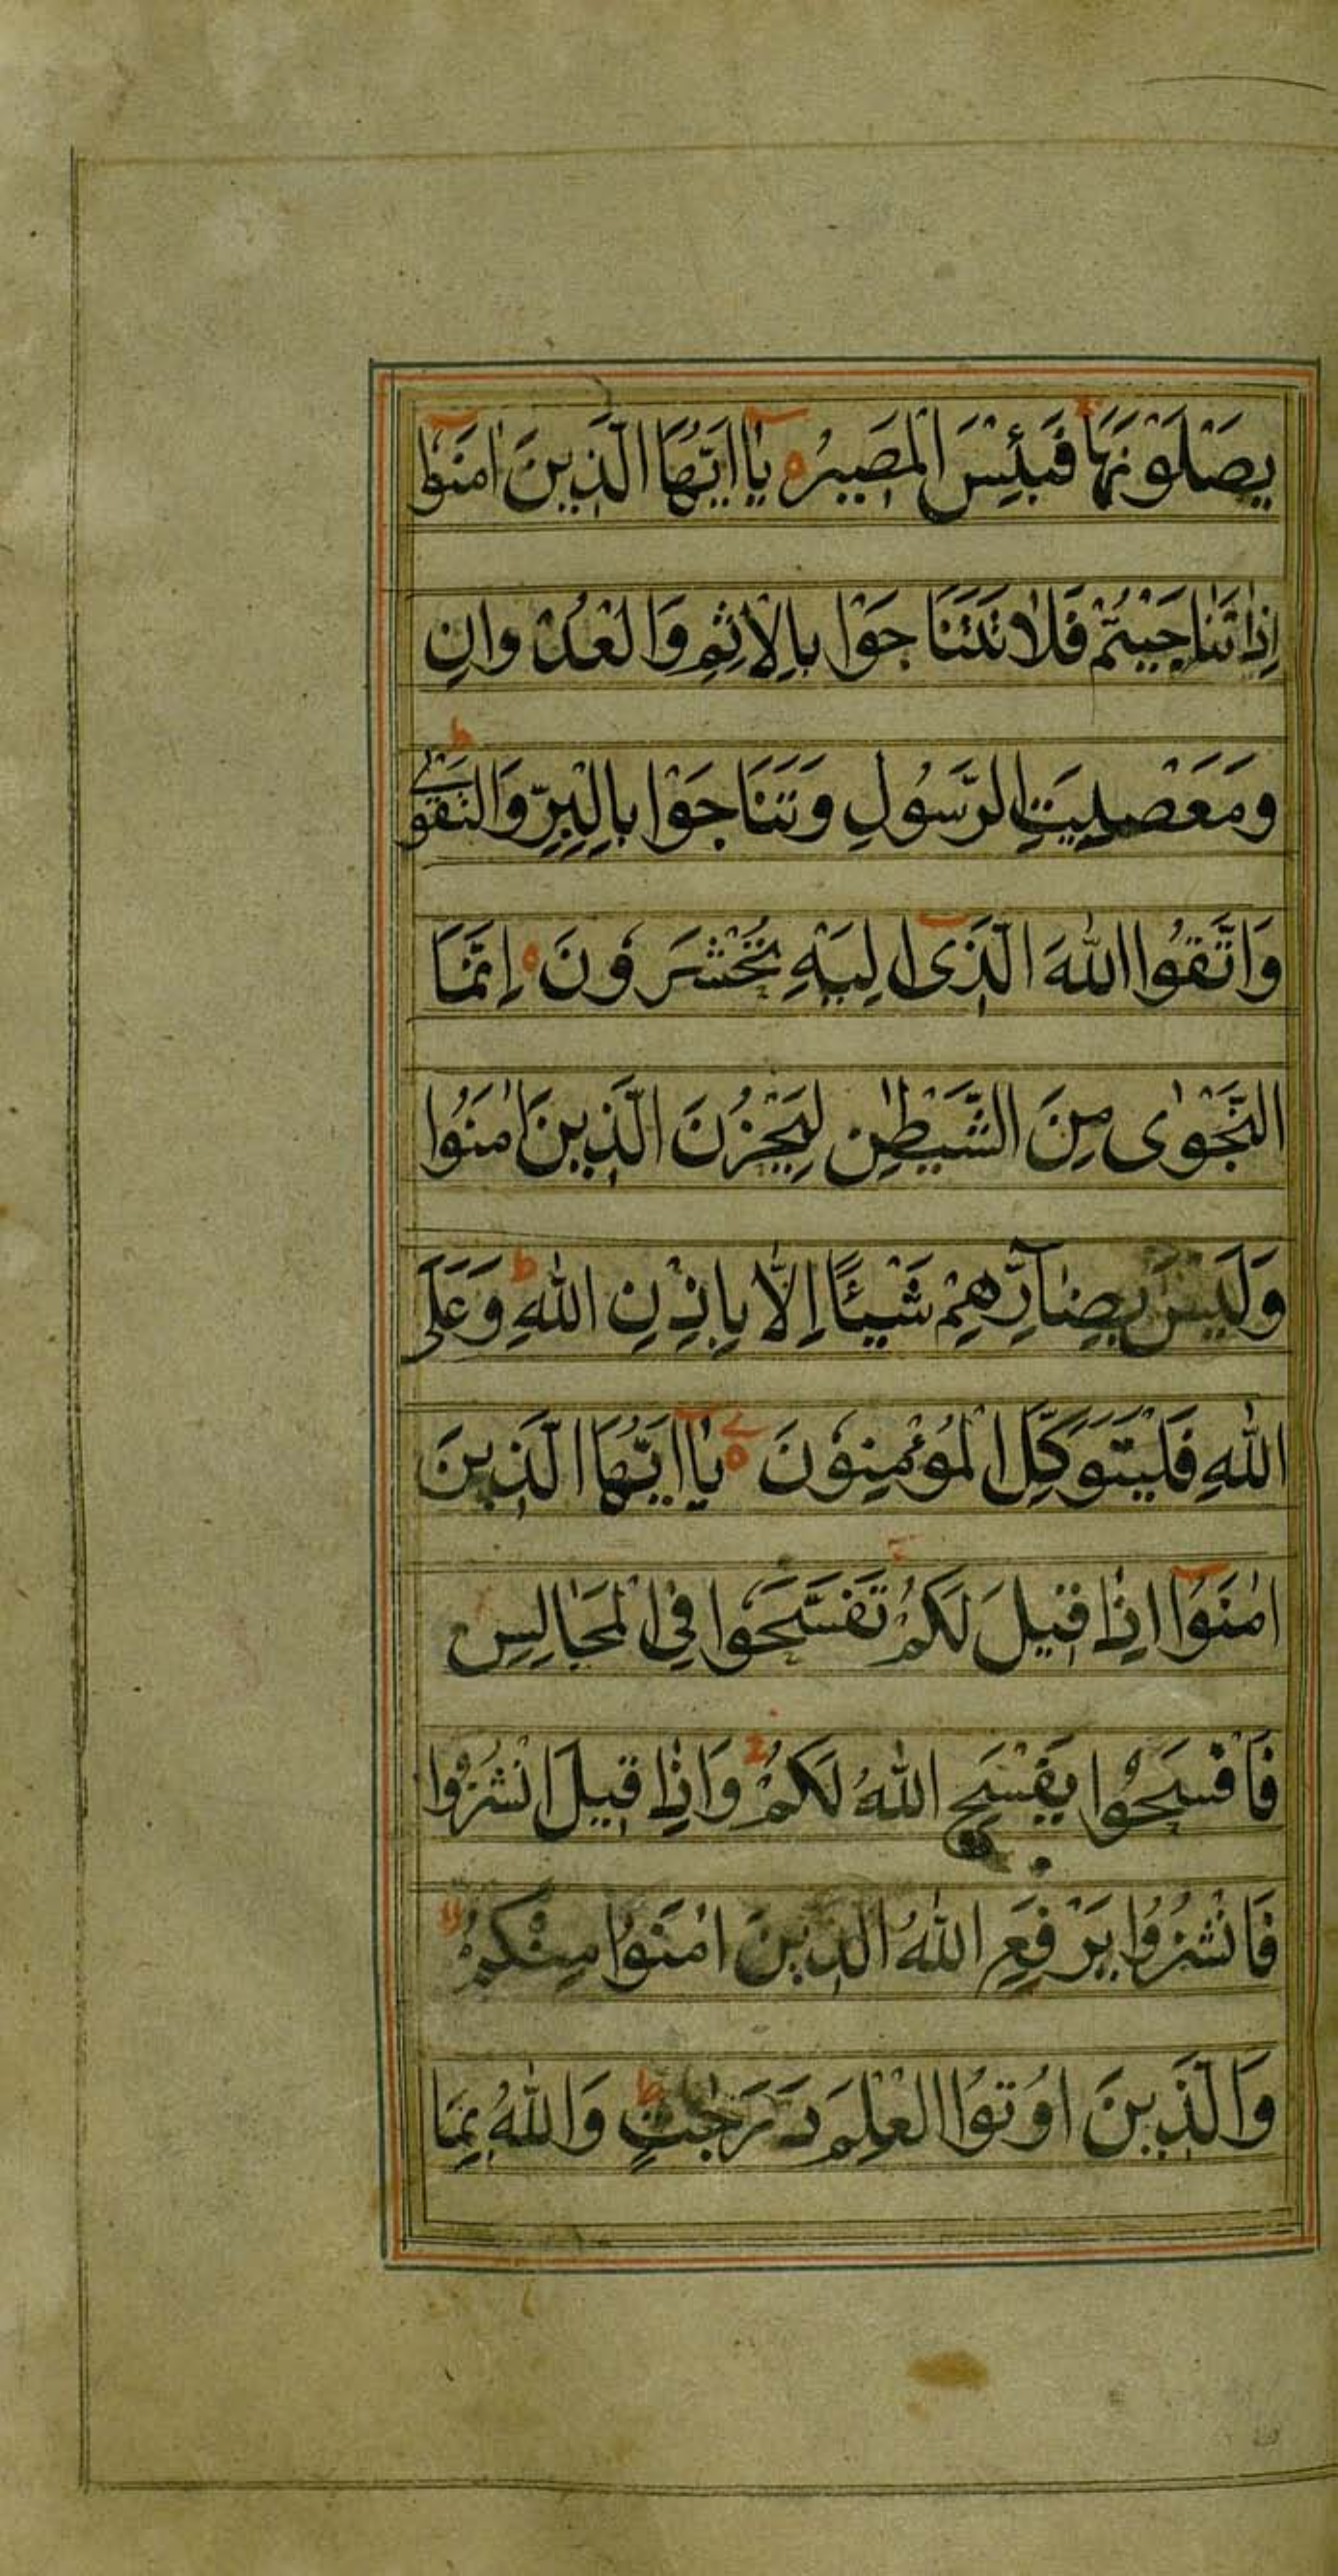 يَصْلَوْنَهَا فَبِئْسَ الْمَصِيرُ ه يٰاايَّهَا الَّذِينَ اٰمَنُوا
اِذٰا تَنٰاجَيْتُمْ فَلٰا تَتَنَاجَوْا بِالْاِثْمِ وَالْعُدْوانِ
وَمَعْصِيَتِ الرَّسُولِ وَتَنَاجَوْا بِالْبِرِّ وَالتَّقْوٰى ط
وَاتَّقُوا اللّٰهَ الَّذِى اِلَيْهِ تُحْشَرُونَ ه اِنَّمَا
النَّجْوٰى مِنَ الشَّيْطٰنِ لِيَحْزُنَ الَّذِينَ اٰمَنُوا
وَلَيْسَ بِضٰآرِّهِمْ شَيْئًا اِلَّا بِاِذْنِ اللّٰهِ ط وَعَلَى
اللّٰهِ فَلْيَتَوَكَّلِ الْمُؤْمِنُونَ ه يٰاايُّهَا الَّذِينَ
اٰمَنُوا اِذٰا قِيلَ لَكُمْ تَفَسَّحُوا فِى الْمَجٰالِسِ
فَافْسَحُوا يَفْسَحِ اللّٰهُ لَكُمْ ج وَاِذٰا قِيلَ انْشُزُوا
فَانْشُزُوا يَرْفَعِ اللّٰهُ الَّذِينَ اٰمَنُوا مِنْكُمْ لا
وَالَّذِينَ اُوتُوا الْعِلْمَ دَرَجٰتٍ ط وَاللّٰهُ بِمَا